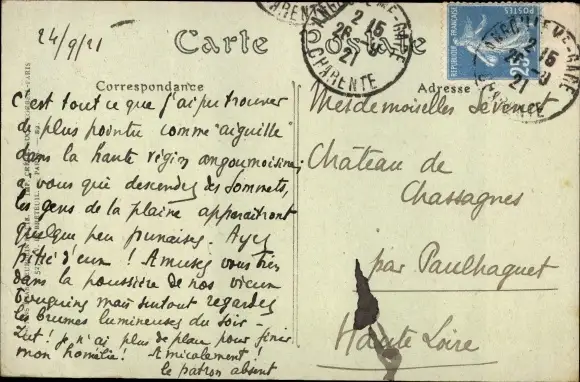 24/9/21
Carte Postale
Correspondance
Adresse
C'est tout ce que j'ai pu trouver
de plus pointu comme "aiguille"
dans la haute région angoumoisine;
à vous qui descendez des sommets,
les gens de la plaine apparaitront
quelque peu punaises. Ayez
pitié d'eux ! Amusez vous bien
dans la poussière de nos vieux
bouquins mais surtout regardez
les brumes lumineuses du soir -
Zut ! je n'ai plus de place pour finir
mon homélie ! Amicalement !
le patron absent
Mesdemoiselles
Château de
Chassagnes
par Paulhaguet
Haute Loire
ANGOULEME-GARE
2 15
26 9
21
CHARENTE
REPUBLIQUE FRANÇAISE
POSTES
25